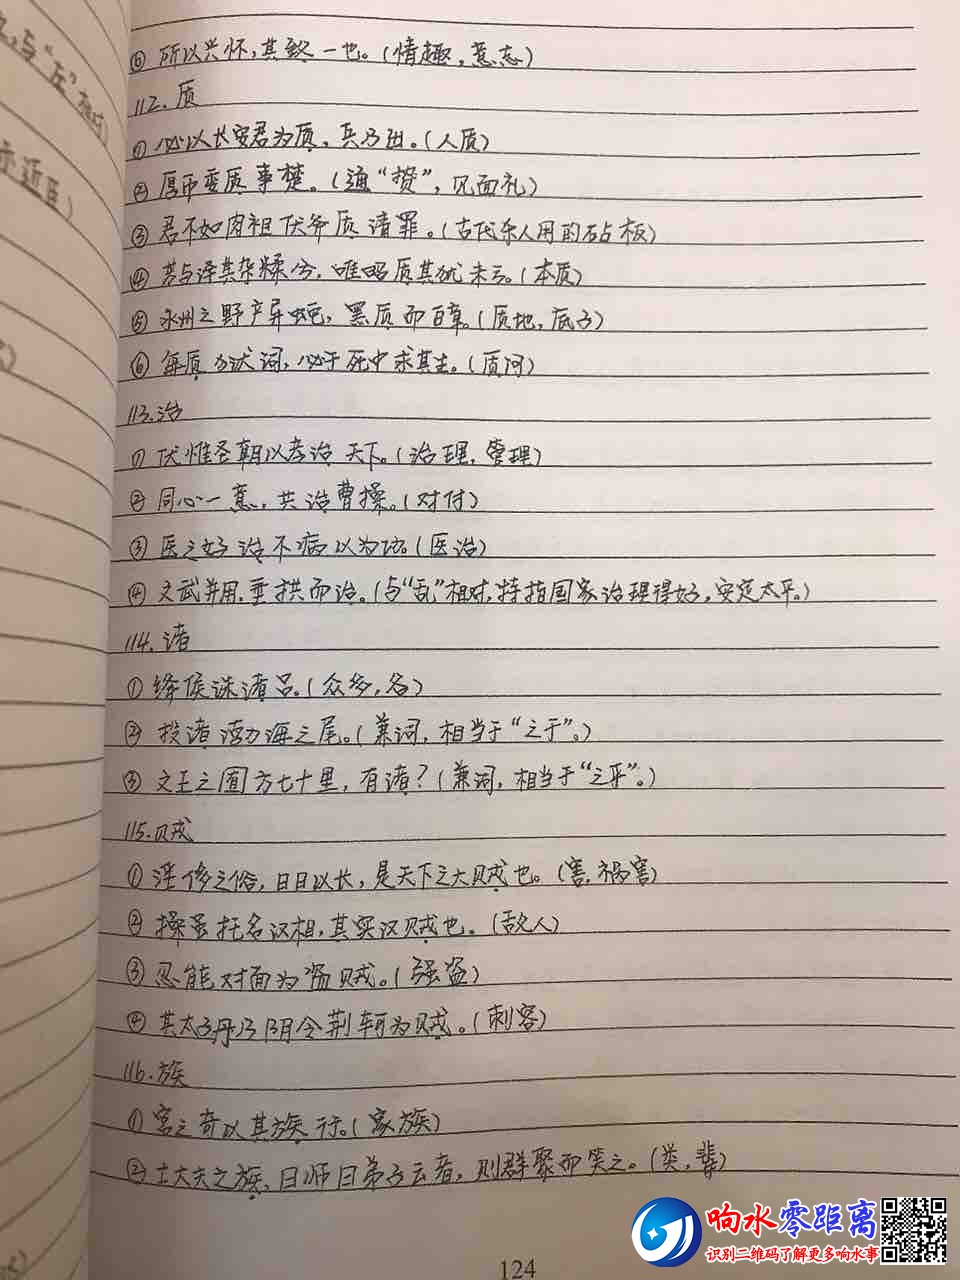 与“左”相对)
示近臣)
⑥ 所以兴怀,其致一也。(情趣,意志)
112. 质
① 必以长安君为质,兵乃出。(人质)
② 厚币委质事楚。(通“贽”,见面礼)
③ 君不如肉袒伏斧质请罪。(古代杀人用的砧板)
④ 芳与泽其杂糅兮,唯昭质其犹未亏。(本质)
⑤ 永州之野产异蛇,黑质而白章。(质地,底子)
⑥ 每质办狱词,必于死中求其生。(质问)
113.治
① 伏惟圣朝以孝治天下。(治理,管理)
② 同心一意,共治曹操。(对付)
③ 医之好治不病以为功。(医治)
④ 文武并用,垂拱而治。(与“乱”相对,特指国家治理得好,安定太平。)
114.诸
① 绛侯诛诸吕。(众多,各)
② 投诸渤海之尾。(兼词,相当于“之于”。)
③ 文王之囿方七十里,有诸?(兼词,相当于“之乎”。)
115.贼
① 淫侈之俗,日日以长,是天下之大贼也。(害,祸害)
② 操虽托名汉相,其实汉贼也。(敌人)
③ 忍能对面为盗贼。(强盗)
④ 其太子丹乃阴令荆轲为贼。(刺客)
116.族
① 宫之奇以其族行。(家族)
② 士大夫之族,曰师曰弟子云者,则群聚而笑之。(类,辈)
124
响水零距离
识别二维码了解更多响水事